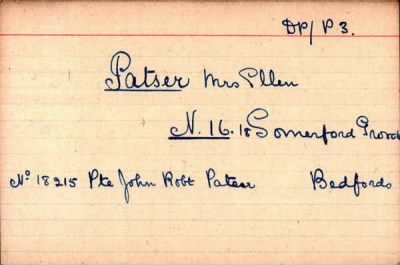 DP/P 3.
Patser Mrs Ellen
N. 16. 18 Somerford Grove
No 18215 Pte John Robt Patser Bedfords